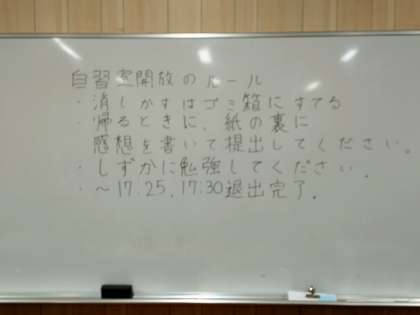 自習室開放のルール
・消しかすはゴミ箱にすてる
・帰るときに、紙の裏に
感想を書いて提出してください。
・しずかに勉強してください.
・～17.25.17:30退出完了.